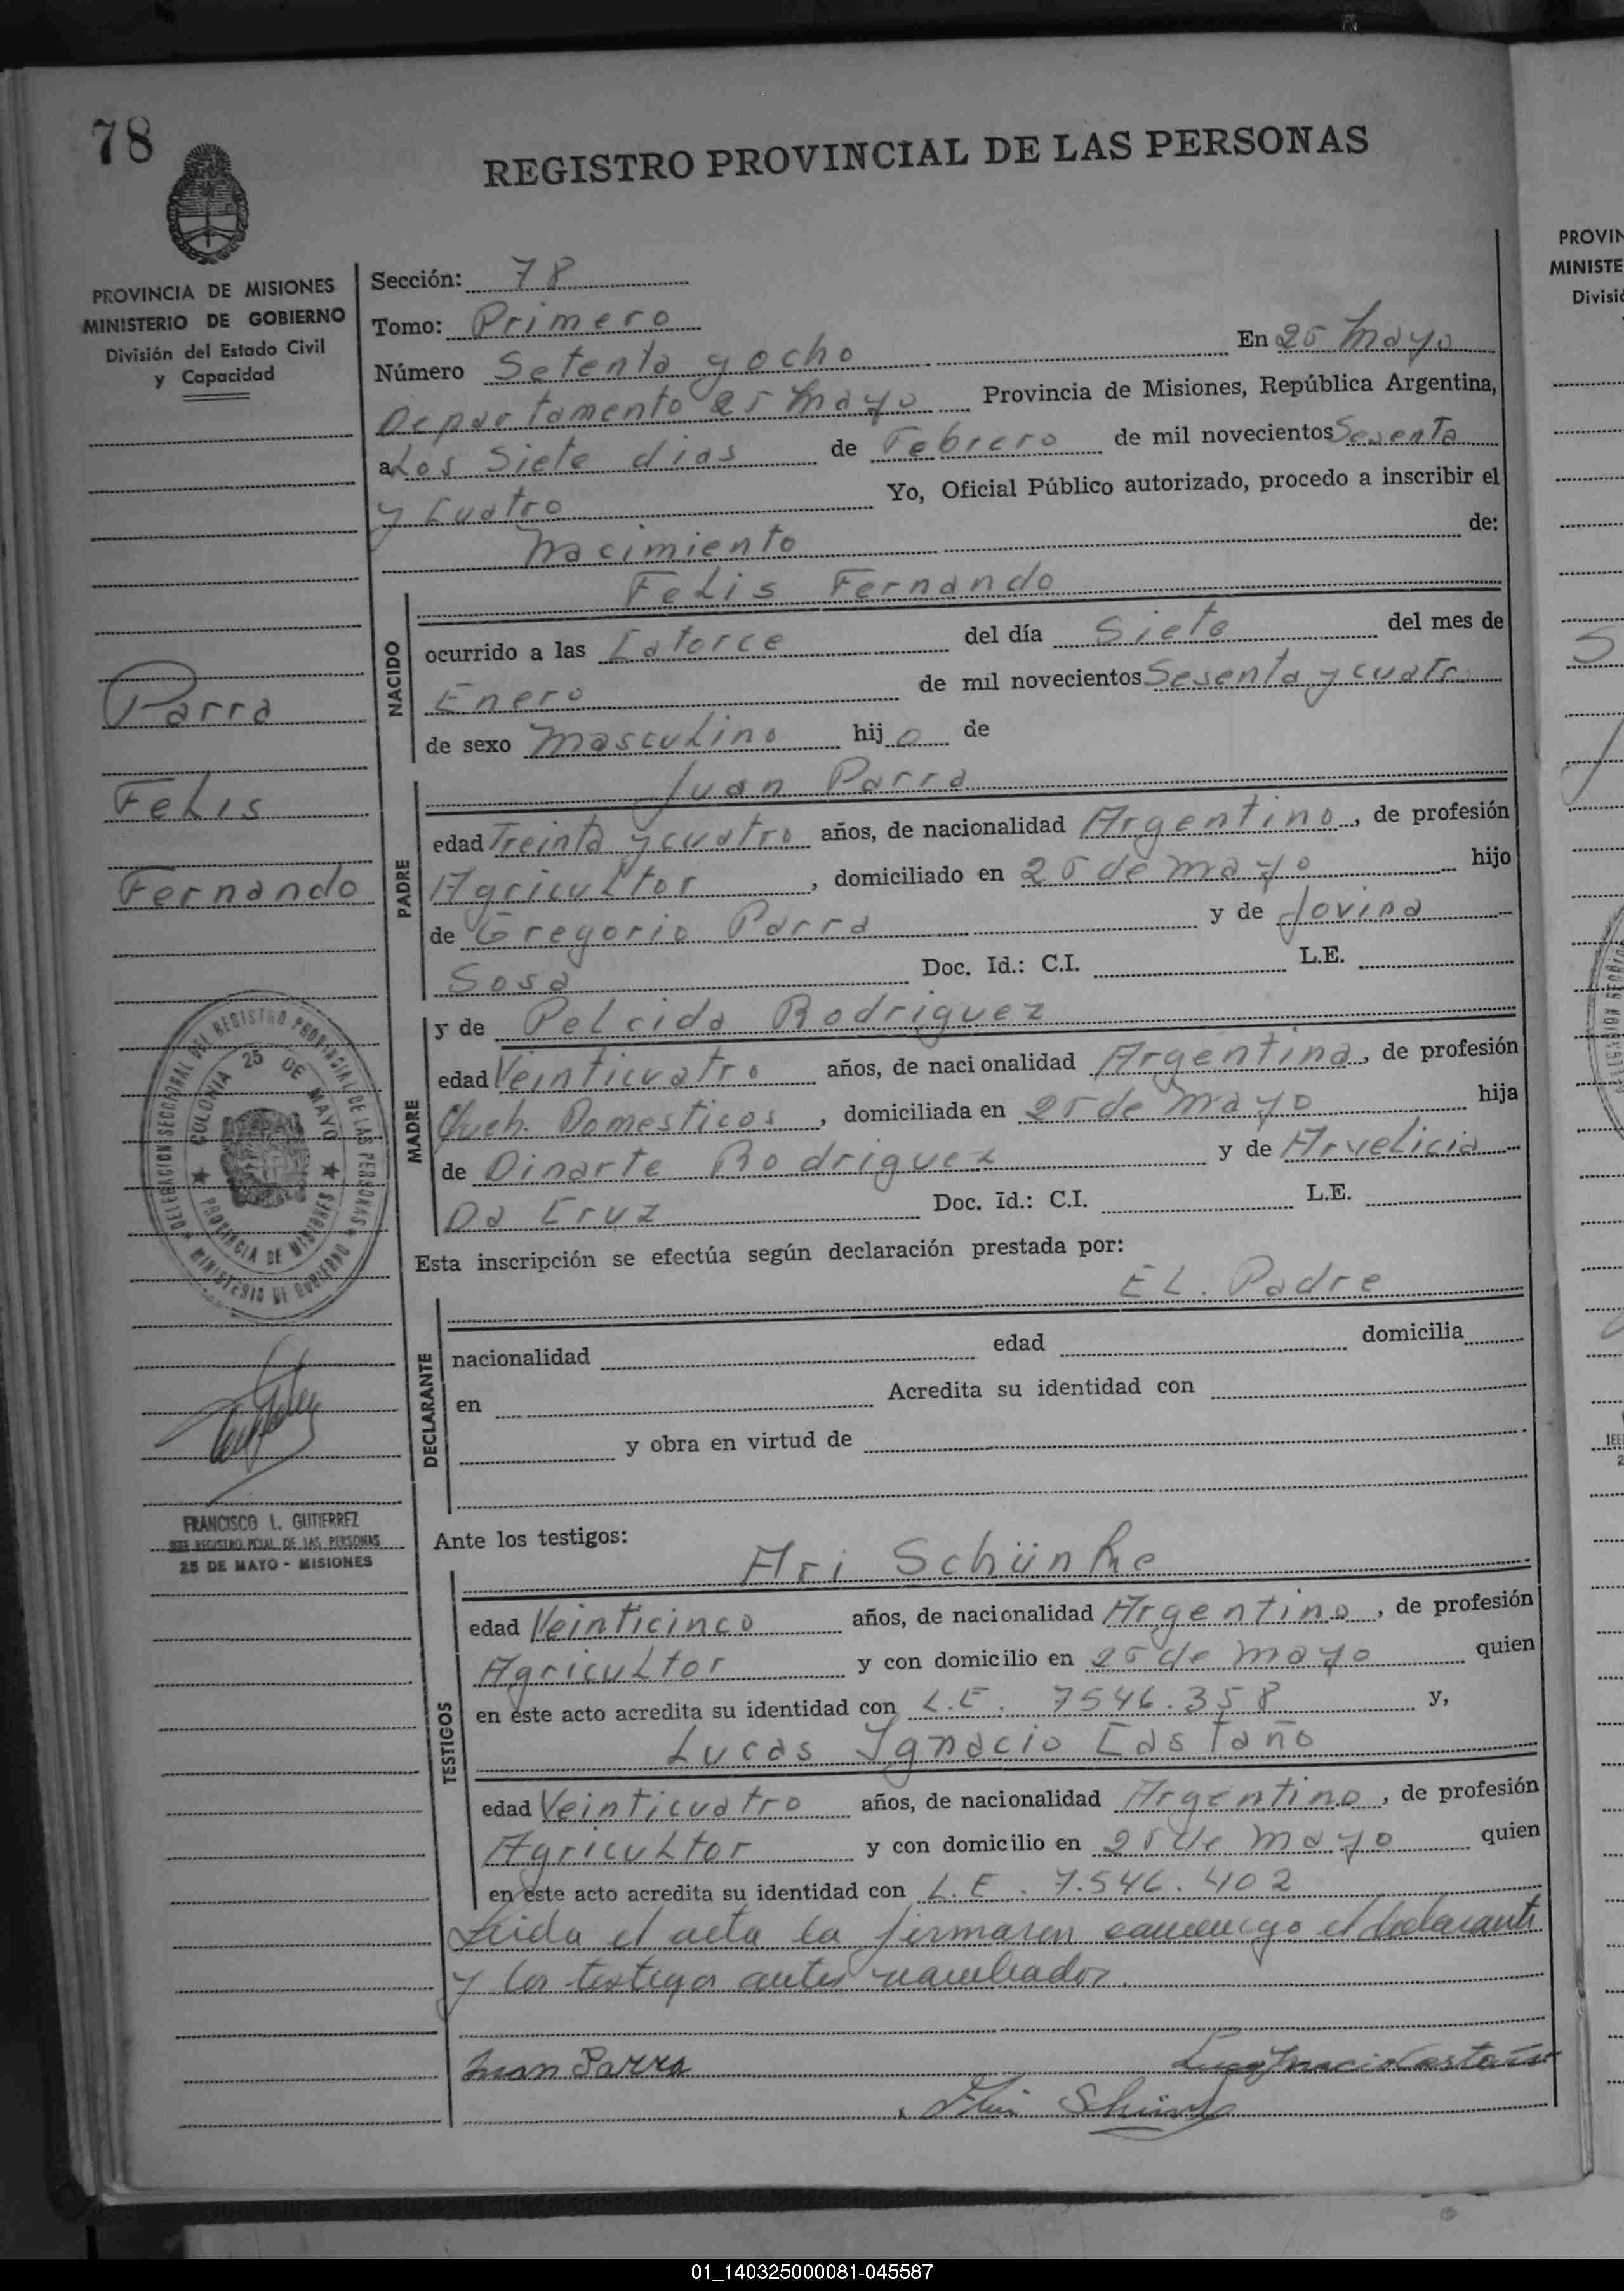 78
REGISTRO PROVINCIAL DE LAS PERSONAS
PROVINCIA DE MISIONES
MINISTERIO DE GOBIERNO
División del Estado Civil
y Capacidad
Sección: 78
Tomo: Primero
Número Setenta y ocho En 25 Mayo
Departamento 25 Mayo Provincia de Misiones, República Argentina,
a Los Siete dias de Febrero de mil novecientos Sesenta
y Cuatro Yo, Oficial Público autorizado, procedo a inscribir el
Nacimiento de:
NACIDO
Felis Fernando
ocurrido a las Catorce del día Siete del mes de
Enero de mil novecientos Sesenta y cuatro
de sexo Masculino hij o de
Parra
Felis
Fernando
PADRE
Juan Parra
edad Treinta y cuatro años, de nacionalidad Argentino, de profesión
Agricultor, domiciliado en 25 de Mayo hijo
de Gregorio Parra y de Jovina
Sosa Doc. Id.: C.I. L.E.
MADRE
y de Pelcida Rodriguez
edad Veinticuatro años, de nacionalidad Argentina, de profesión
Queh. Domesticos, domiciliada en 25 de Mayo hija
de Dinarte Rodriguez y de Arvelicia
Da Cruz Doc. Id.: C.I. L.E.
DELEGACION SECCIONAL DEL REGISTRO PROVINCIAL DE LAS PERSONAS
MINISTERIO DE GOBIERNO
COLONIA 25 DE MAYO
PROVINCIA DE MISIONES
Esta inscripción se efectúa según declaración prestada por:
DECLARANTE
EL. Padre
nacionalidad edad domicilia
en Acredita su identidad con
y obra en virtud de
FRANCISCO L. GUTIERREZ
JEFE REGISTRO PCIAL DE LAS PERSONAS
25 DE MAYO - MISIONES
Ante los testigos:
TESTIGOS
Ari Schünke
edad Veinticinco años, de nacionalidad Argentino, de profesión
Agricultor y con domicilio en 25 de Mayo quien
en este acto acredita su identidad con L.E. 7546.358 y,
Lucas Ignacio Castaño
edad Veinticuatro años, de nacionalidad Argentino, de profesión
Agricultor y con domicilio en 25 de Mayo quien
en este acto acredita su identidad con L.E. 7.546.402
Leida el acta la firmaron conmigo el declarante
y los testigos antes nombrados.
Juan Parra
Lucas Ignacio Castaño
PROVIN
MINISTE
Divisió
01_140325000081-045587